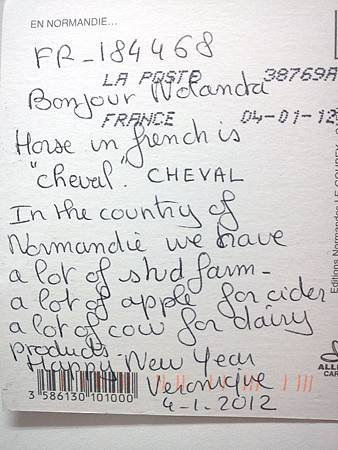 EN NORMANDIE...
FR-184468
LA POSTE 38769A
Bonjour Wolanda
FRANCE 04-01-12
Horse in french is
"cheval". CHEVAL
In the country of
Normandie we have
a lot of stud farm-
a lot of apple for cider
a lot of cow for dairy
products-
Happy New Year
Veronique
4-1.2012
3 586130 101000
Editions Normandes LE GOUBEY